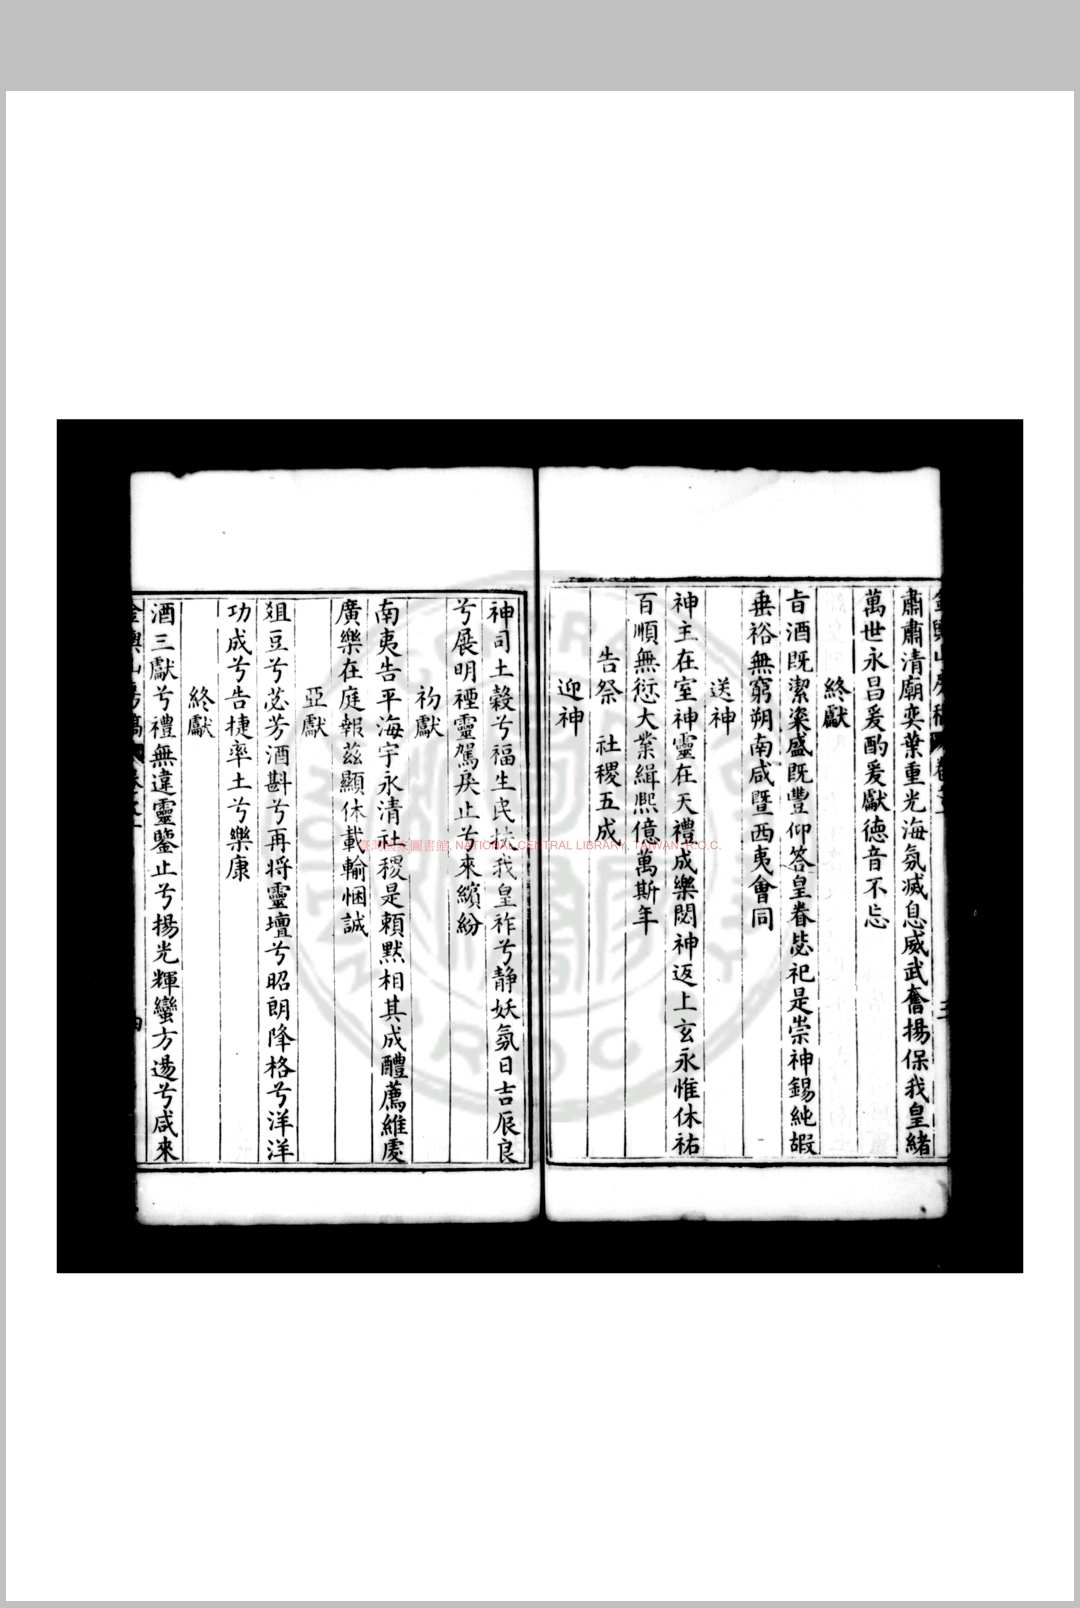 肅肅清廟奕葉重光海氛滅息威武奮揚保我皇緒
萬世永昌爰酌爰獻德音不忘
終獻
旨酒既潔粢盛既豐仰答皇眷毖祀是崇神錫純嘏
垂裕無窮朔南咸暨西夷會同
送神
神主在室神靈在天禮成樂閟神返上玄永惟休祐
百順無愆大業緝熙億萬斯年
告祭 社稷五成
迎神
神司土穀兮福生民扶我皇祚兮靜妖氛日吉辰良
兮展明禋靈駕戾止兮來繽紛
初獻
南夷告平海宇永清社稷是賴默相其成醴薦維虔
廣樂在庭報茲顯休載輸悃誠
亞獻
俎豆兮苾芳酒斟兮再将靈壇兮昭朗降格兮洋洋
功成兮告捷率土兮樂康
終獻
酒三獻兮禮無違靈鑒止兮揚光輝蠻方盪兮咸來
臺灣國家圖書館, NATIONAL CENTRAL LIBRARY, TAIWAN, R.O.C.